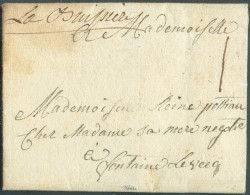 La Buissiere
A Mademoiselle
Mademoiselle Reine pottiau
Chez Madame sa mere negote
à
fontaine Levecq